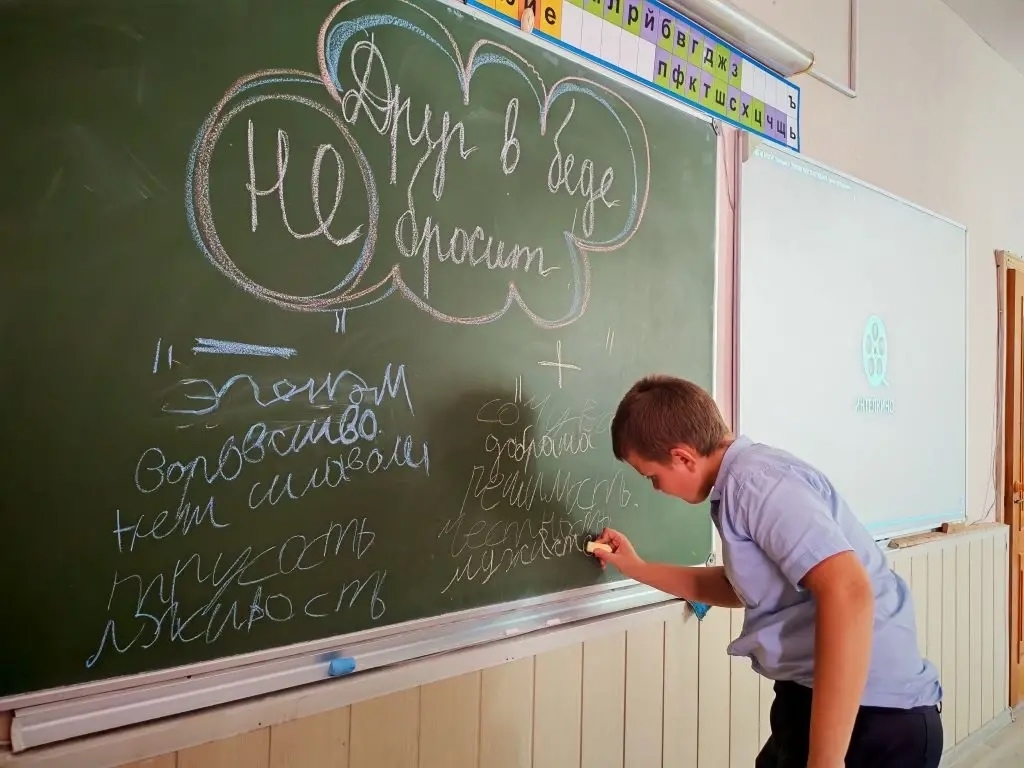 ие
л р й б в г д ж з
п ф к т ш с х ц ч щ
ъ
ь
Друг в беде
Не
бросит
воровство
нет силаволи
трусость
лживость
+
доброта
решимость.
честность
мужест
ИНТЕРКИНО